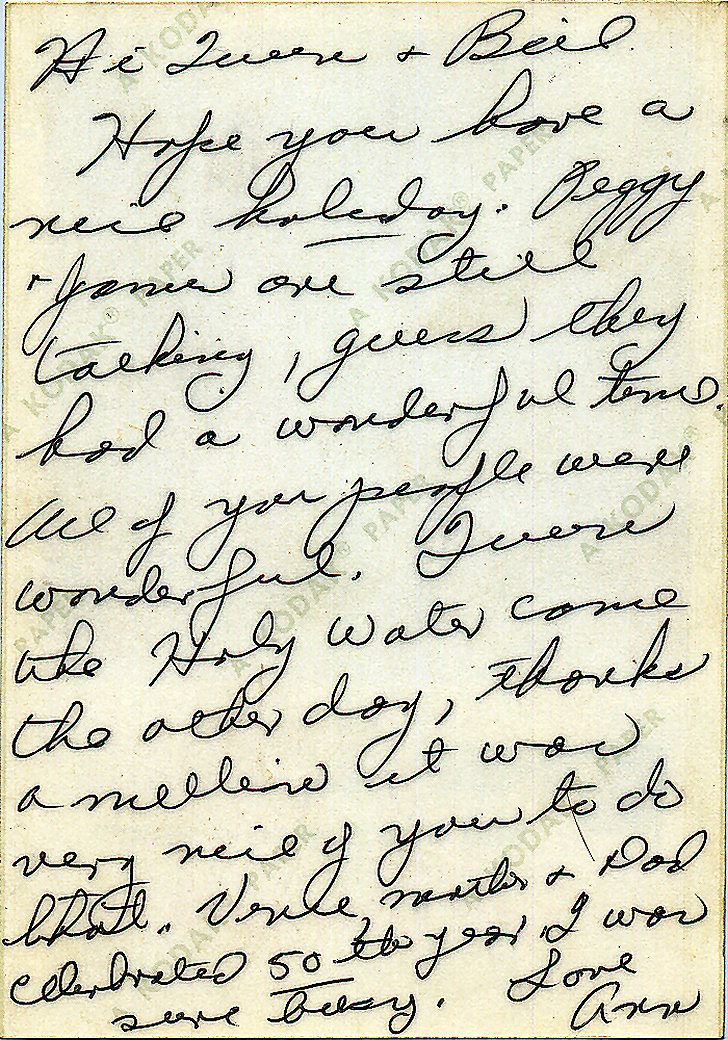 Hi & Bill
Hope you have a
nice holiday. Peggy
& James are still
talking, guess they
had a wonderful time.
All of you people were
wonderful.
the Holy Water came
the other day, thanks
a million it was
very nice of you to do
that. mother & Dad
celebrated 50th year, I was
sure busy. Love
Ann
A KODAK® PAPER